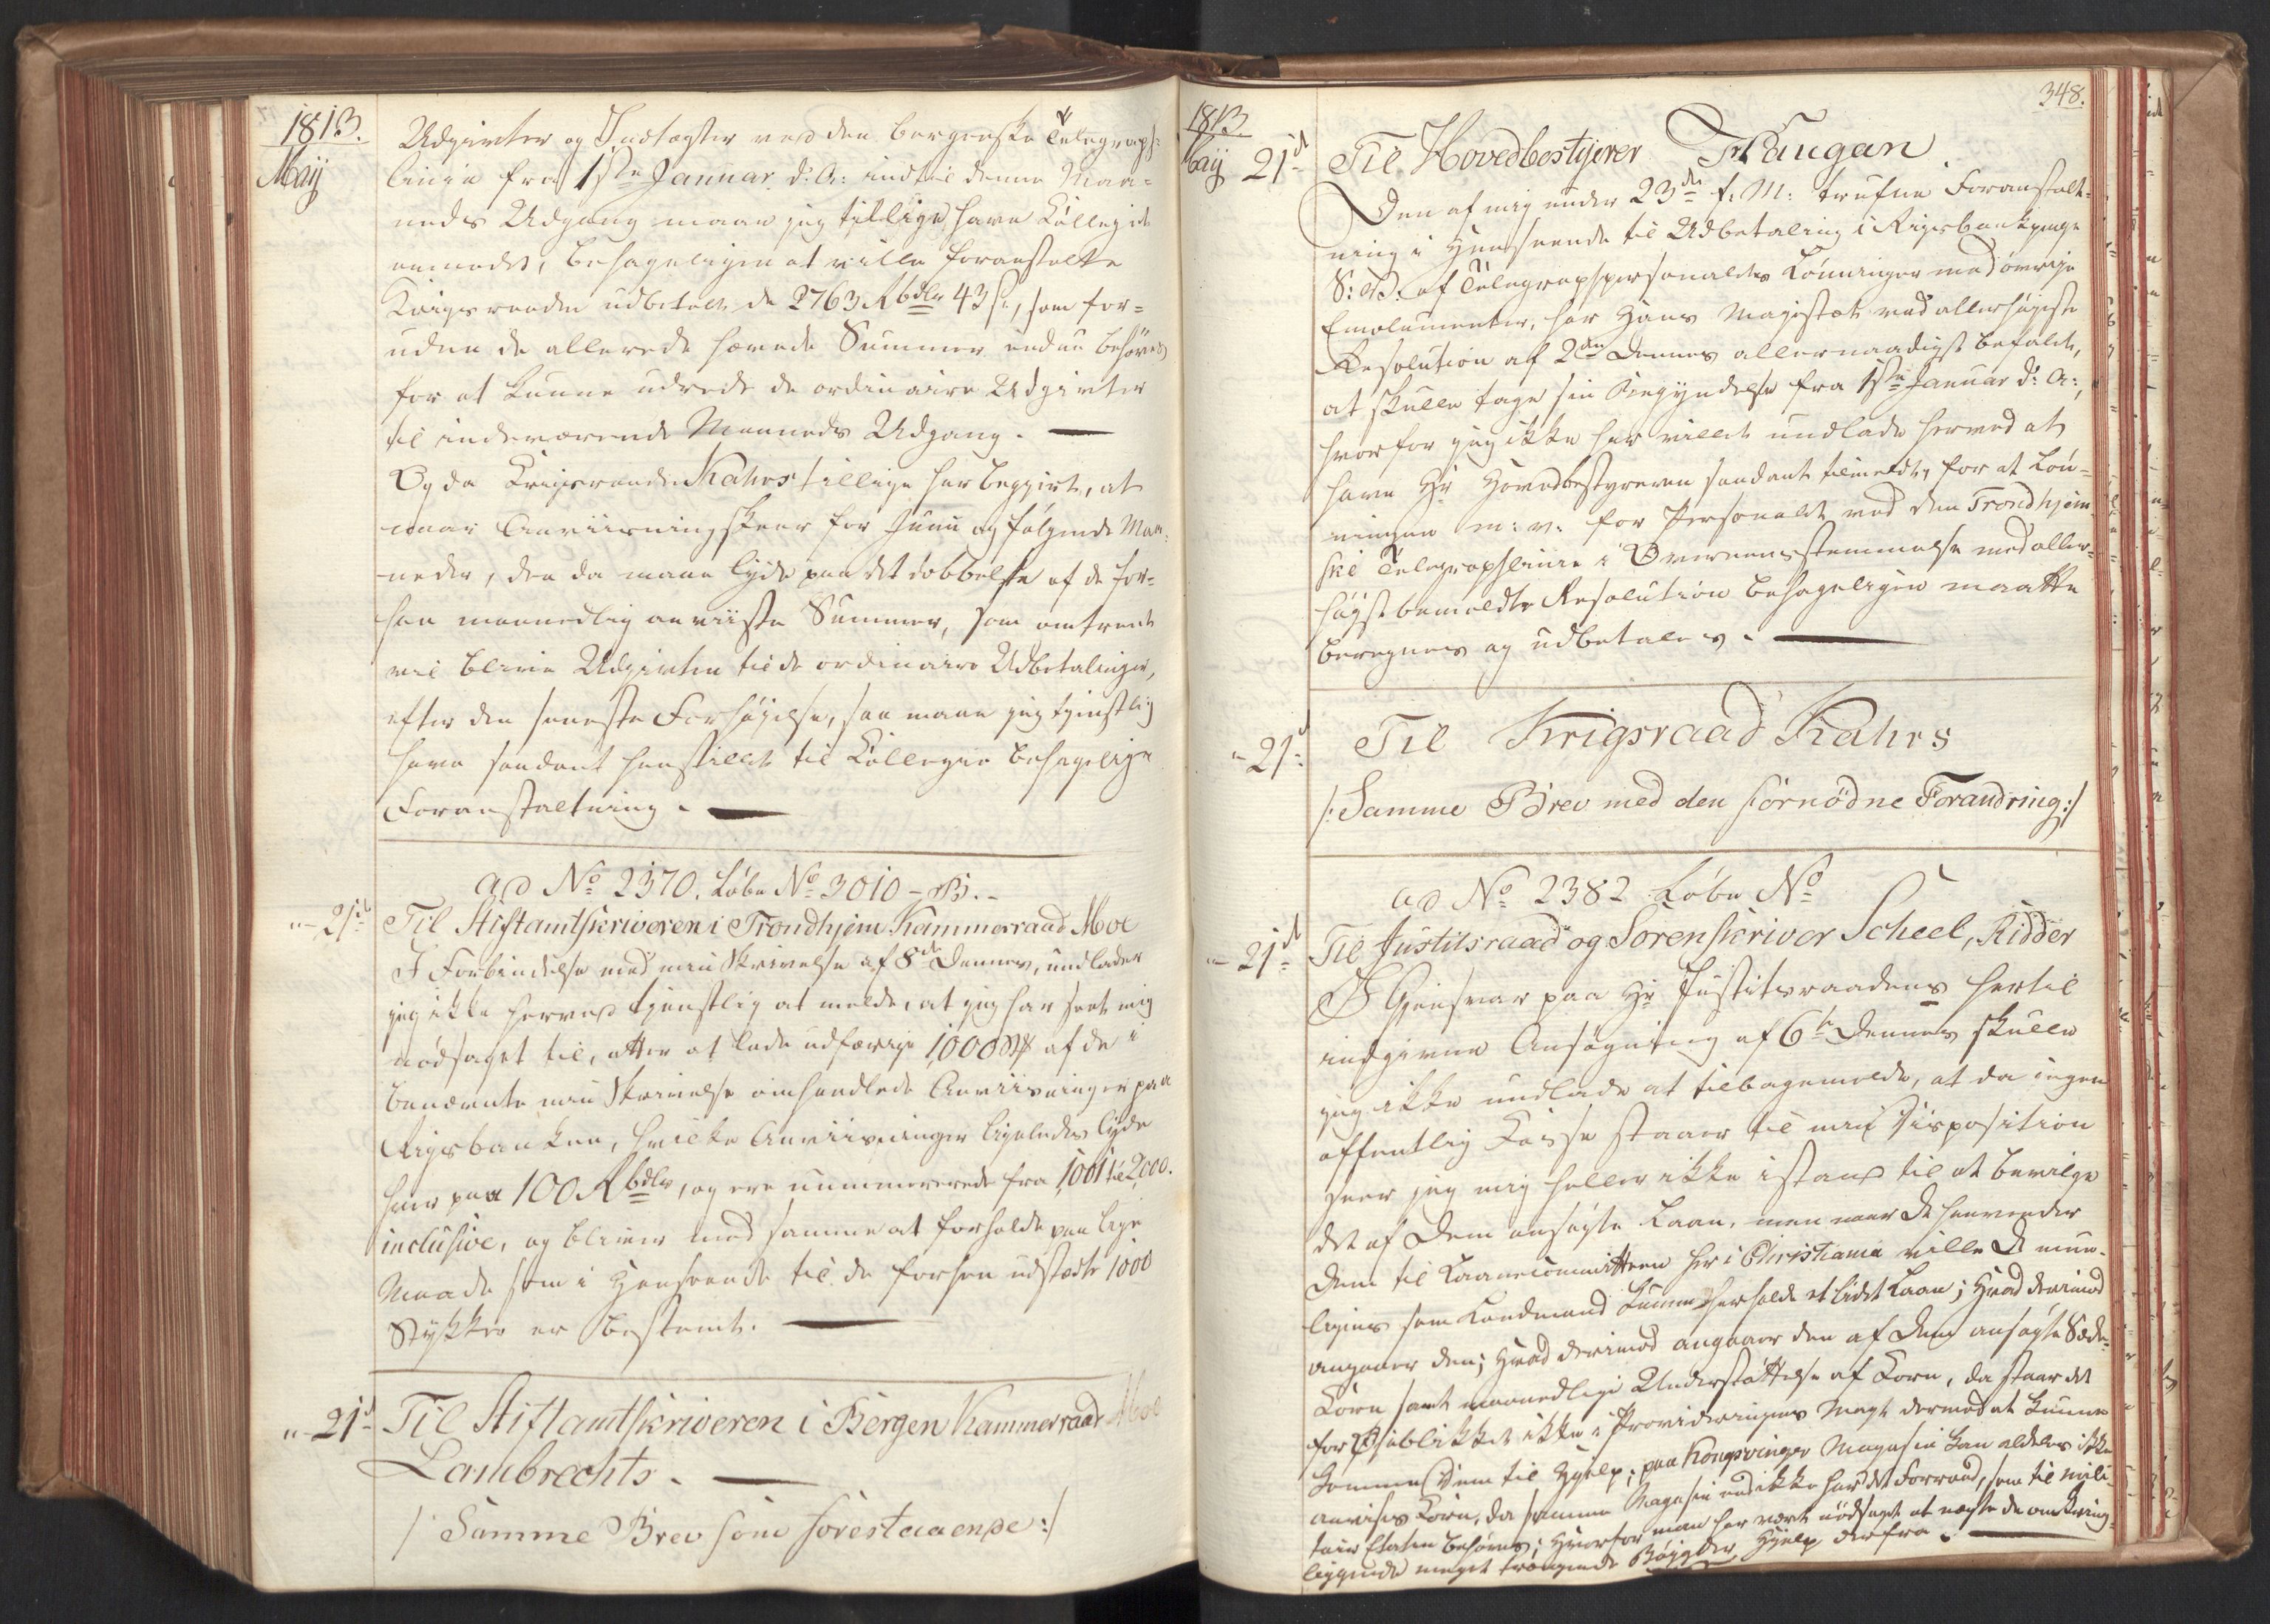 1813.
Maij
Udgivter og Indtægter ved den bergenske Telegraph-
linie fra 1ste Januar d: A: indtil denne Maa-
neds Udgang maae jeg tillige have Collegiet
anmodet, behageligen at ville foranstalte
Krigsraaden udbetalt de 2763 Rbdlr 43 s., som for-
uden de allerede hævede Summer endnu behøves
for at kunne udrede de ordinaire Udgivter
til indeværende Maaneds Udgang. —
Og da Krigsraad Kahrs tillige har begjært, at
naar Anviisning skeer for Junii og følgende Maa-
neder, den da maae lyde paa det dobbelte af de for-
hen maanedlig anviiste Summer, som omtrent
vil blive Udgivten til de ordinaire Udbetalinger,
efter den seneste Forhøjelse, saa maae jeg tjenstlig
have saadant henstillet til Collegiets behagelige
Foranstaltning. —
ad No 2370. Løbe No 3010 - B. -
" - 21de
Til Stiftamtskriveren i Trondhjem Kammerraad Moe
I Forbindelse med min Skrivelse af 8de Dennes, undlader
jeg ikke herved tjenstlig at melde, at jeg har seet mig
nødsaget til, atter at lade udfærdige 1000 af de i
benævnte min Skrivelse omhandlede Anviisninger paa
Rigsbanken, hvilke Anviisninger ligeledes lyde
hver paa 100 Rbdlr, og ere nummererede fra 1001 til 2000.
inclusive, og bliver med samme at forholde paa lige
Maade som i Henseende til de forhen udstædte 1000
Stykker er bestemt. —
" - 21de
Til Stiftamtskriveren i Bergen Kammerraad Moe
Lambrechts. —
/: Samme Brev som forestaaende :/
348.
1813
Maij 21de
Til Hovedbestyrer Haugan
Den af mig under 23de f: M: trufne Foranstalt-
ning i Henseende til Udbetaling i Rigsbankpenge
S: V: af Telegraphpersonalets Lønninger med øvrige
Emolumenter, har Hans Majestæt ved allerhøjeste
Resolution af 2den Dennes allernaadigst befalet,
at skulle tage sin Begyndelse fra 1ste Januar d: A:,
hvorfor jeg ikke har villet undlade herved at
have Hr Hovedbestyreren saadant tilmeldt, for at Løn-
ningen m: v: for Personalet ved den Trondhjem-
ske Telegraphlinie i Overeensstemmelse med aller-
høistbemeldte Resolution behageligen maatte
beregnes og udbetales. —
" 21de
Til Krigsraad Kahrs
/: Samme Brev med den fornødne Forandring :/
ad No 2382 Løbe No
" - 21de
Til Justitsraad og Sorenskriver Scheel, Ridder
I Gjensvar paa Hr Justitsraadens hertil
indgivne Ansøgning af 6te Dennes skulle
jeg ikke undlade at tilbagemelde, at da ingen
offentlig Casse staaer til min Disposition
seer jeg mig heller ikke istand til at bevilge
det af Dem ansøgte Laan, men naar De henvender
Dem til Laanecommitteen her i Christiania ville De mue-
ligens som Landmand kunne erholde et lidet Laan; Hvad derimod
angaaer den; Hvad derimod angaaer den af Dem ansøgte Sæde-
Korn samt maanedlige Understøttelse af Korn, da staaer det
for Øieblikket ikke i Provideringens Magt dermed at kunne
komme Dem til Hjelp; paa Kongsvinger Magasin kan aldeles ikke
anvises Korn, da samme Magasin end ikke har det Forraad, som til mili-
taire Etaten behøves; Hvorfor man har været nødsaget at nægte de omkring-
liggende meget trængende Bøjgder Hjelp derfra. —